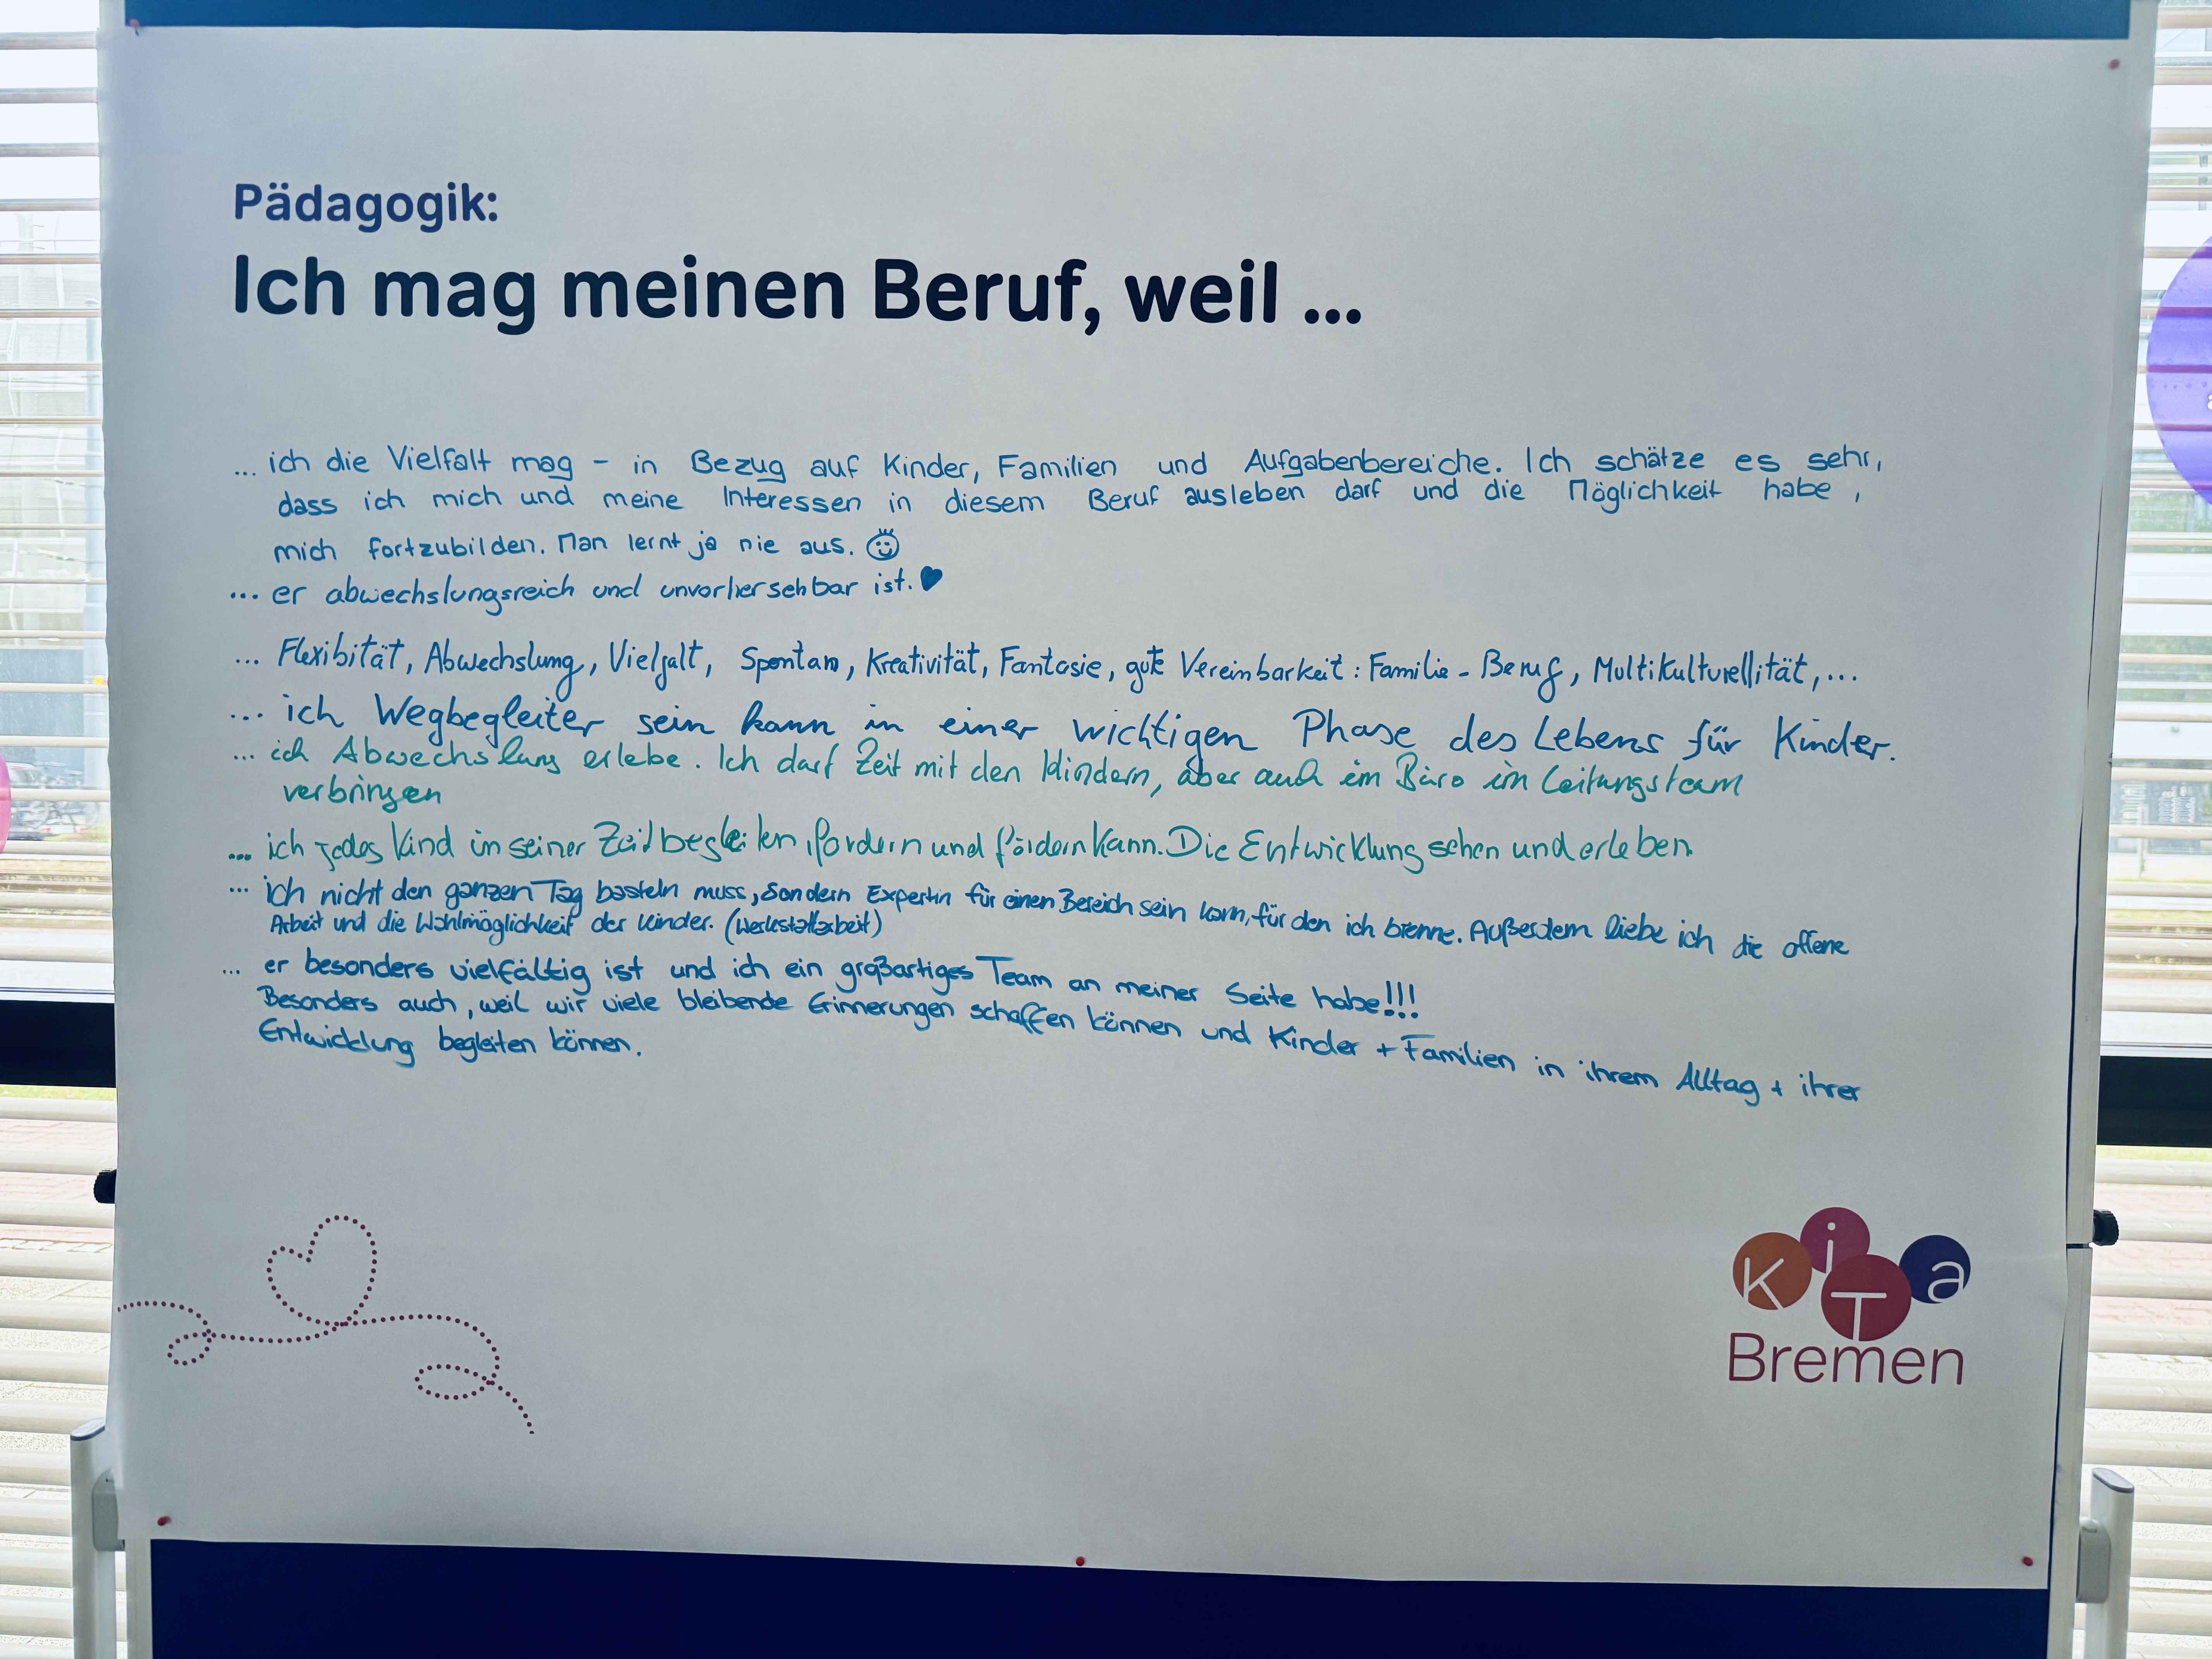 Pädagogik:
Ich mag meinen Beruf, weil ...
... ich die Vielfalt mag – in Bezug auf Kinder, Familien und Aufgabenbereiche. Ich schätze es sehr,
dass ich mich und meine Interessen in diesem Beruf ausleben darf und die Möglichkeit habe,
mich fortzubilden. Man lernt ja nie aus.
... er abwechslungsreich und unvorhersehbar ist. ♥
... Flexibität, Abwechslung, Vielfalt, Spontan, Kreativität, Fantasie, gute Vereinbarkeit: Familie - Beruf, Multikulturellität, ...
... ich Wegbegleiter sein kann in einer wichtigen Phase des Lebens für Kinder.
... ich Abwechslung erlebe. Ich darf Zeit mit den Kindern, aber auch im Büro im Leitungsteam
verbringen
... ich jedes Kind in seiner Zeit begleiten, fordern und fördern kann. Die Entwicklung sehen und erleben.
... ich nicht den ganzen Tag basteln muss, sondern Expertin für einen Bereich sein kann, für den ich brenne. Außerdem liebe ich die offene
Arbeit und die Wahlmöglichkeit der Kinder. (Werkstattarbeit)
... er besonders vielfältig ist und ich ein großartiges Team an meiner Seite habe!!!
Besonders auch, weil wir viele bleibende Erinnerungen schaffen können und Kinder + Familien in ihrem Alltag + ihrer
Entwicklung begleiten können.
KiTa
Bremen